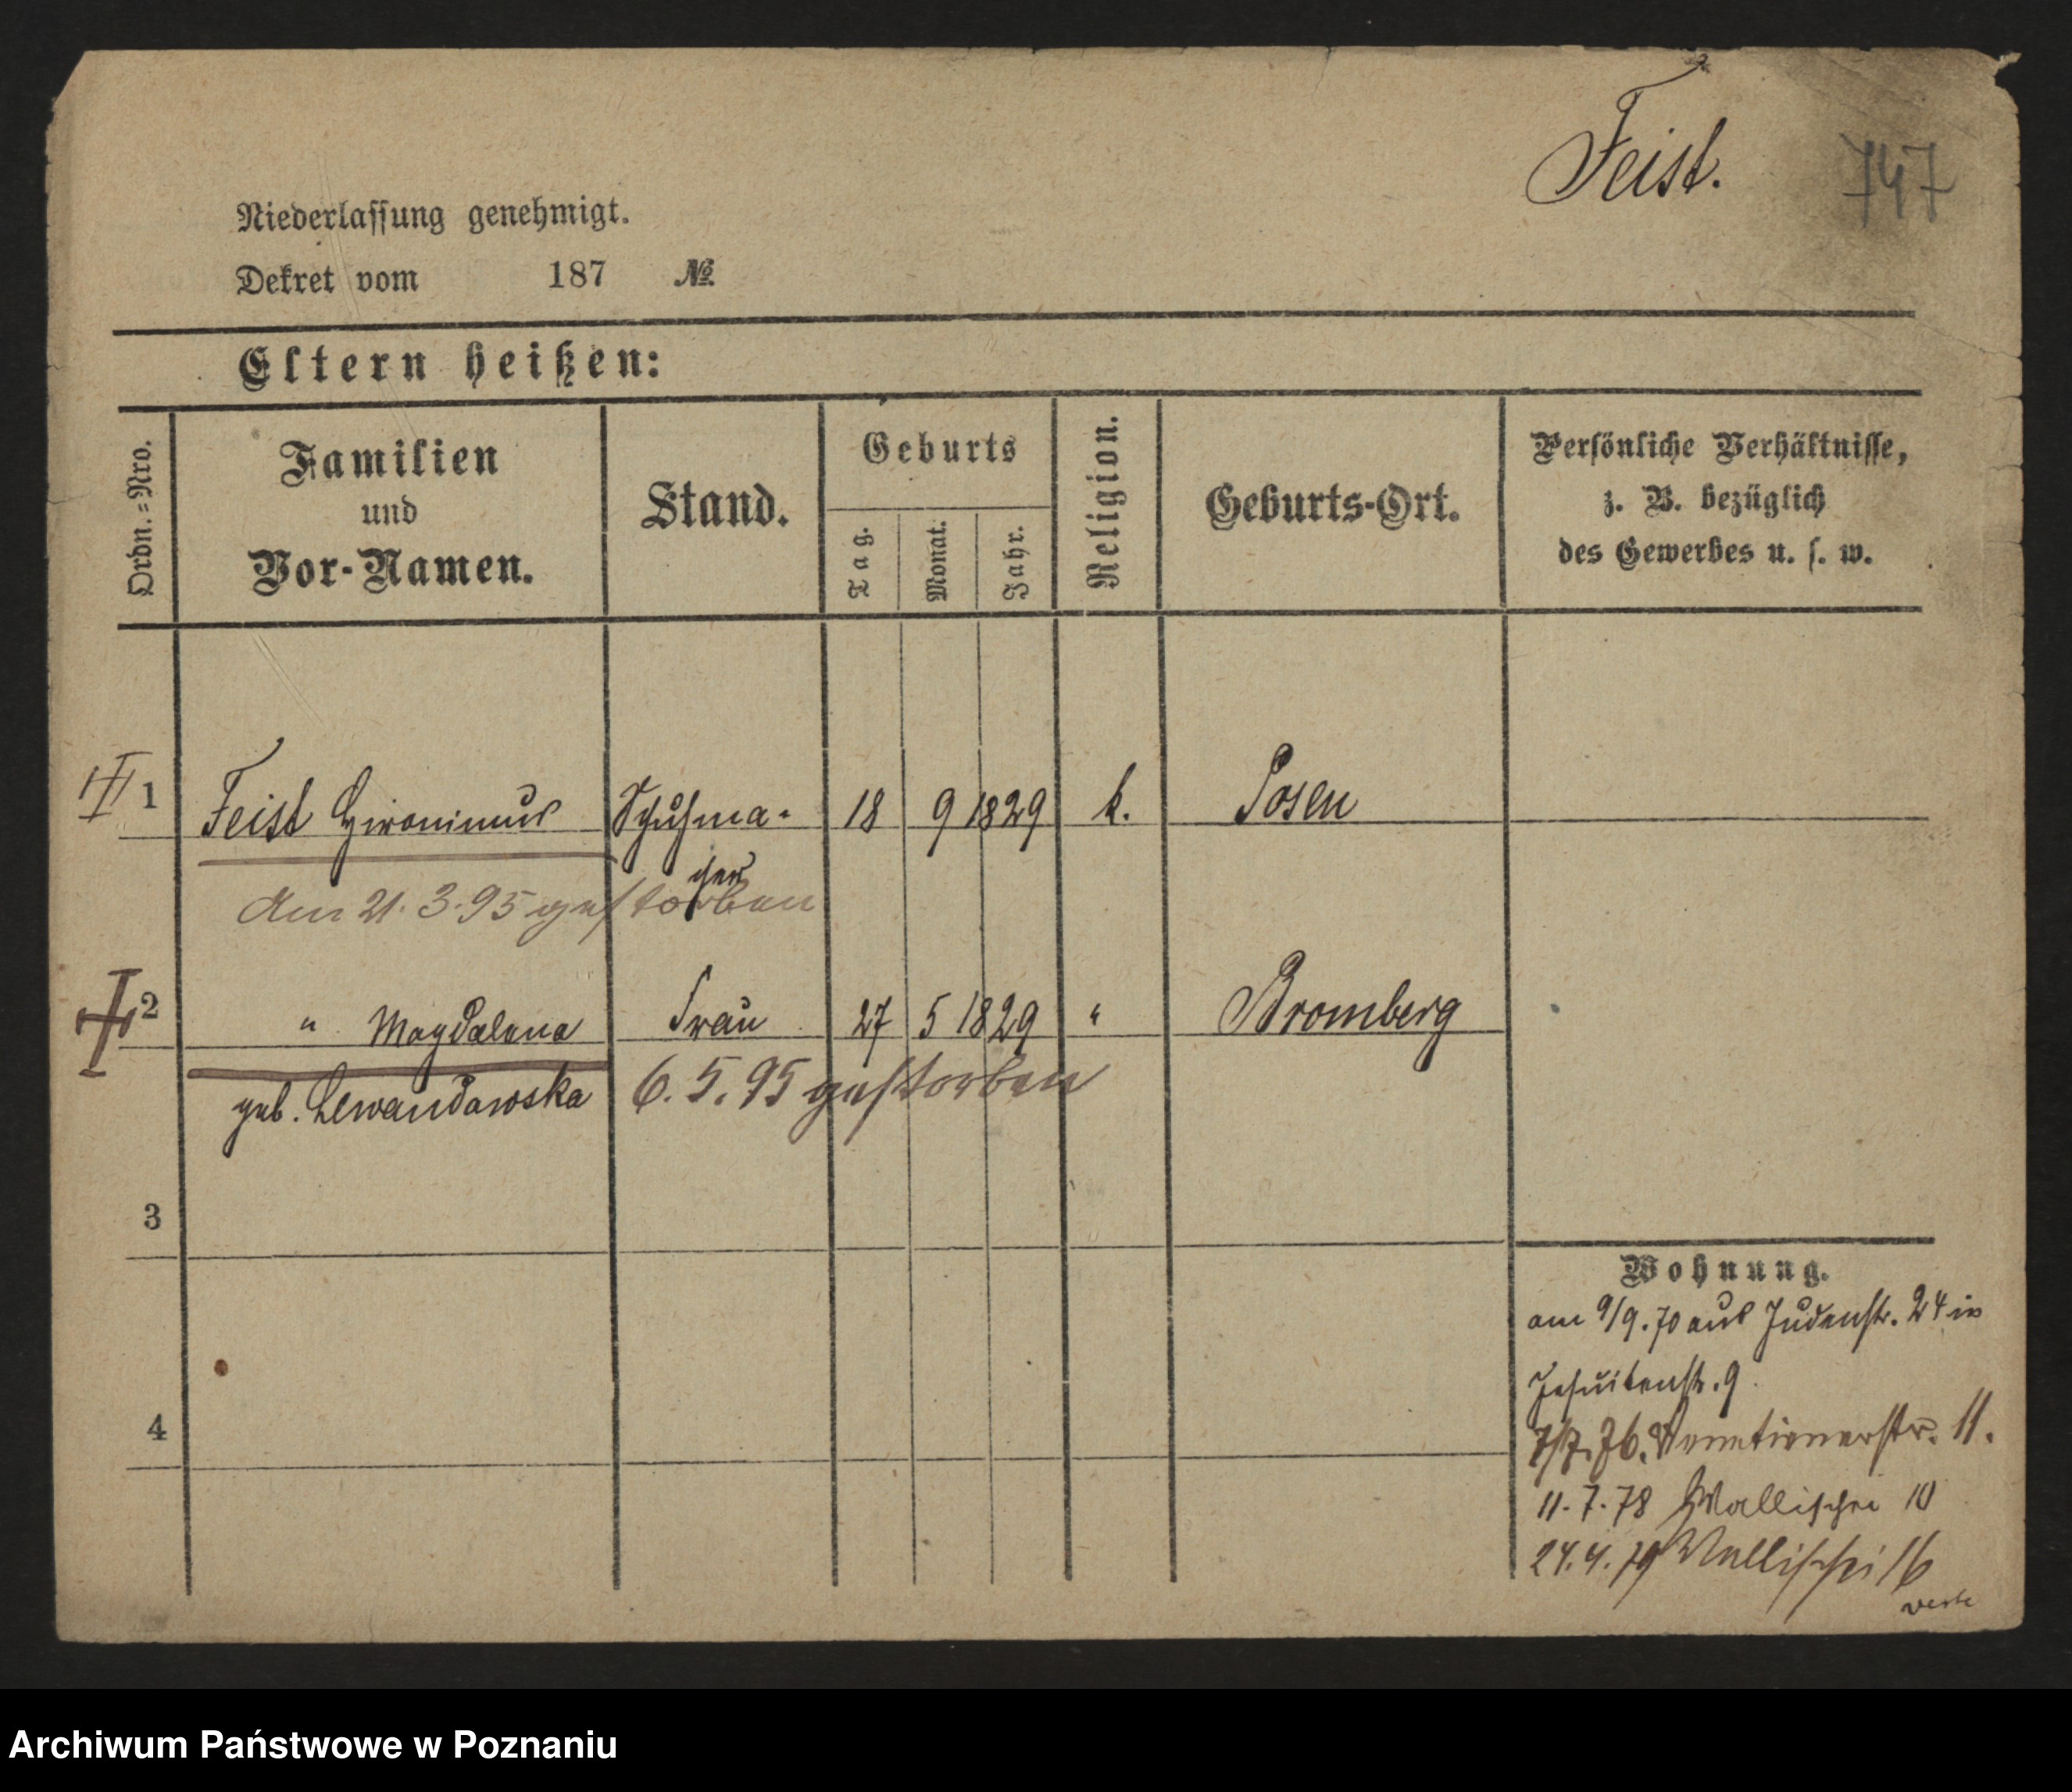 Feist.
747
Niederlassung genehmigt.
Dekret vom 187 №
Eltern heißen:
Ordn.=Nro.
Familien
und
Vor-Namen.
Stand.
Geburts
Tag.
Monat.
Jahr.
Religion.
Geburts-Ort.
Persönliche Verhältnisse,
z. B. bezüglich
des Gewerbes u. s. w.
1 Feist Hieronimus Schuhma- 18 9 1829 k. Posen
cher
Am 21.3.95 gestorben
2 " Magdalena Frau 27 5 1829 " Bromberg
geb. Lewandowska 6.5.95 gestorben
3
4
Wohnung.
am 9/9.70 aus Judenstr. 24 in
Jesuitenstr. 9
7/7.76. Venetianerstr. 11.
11.7.78 Wallischei 10
24.4.79 Wallischei 16
Archiwum Państwowe w Poznaniu